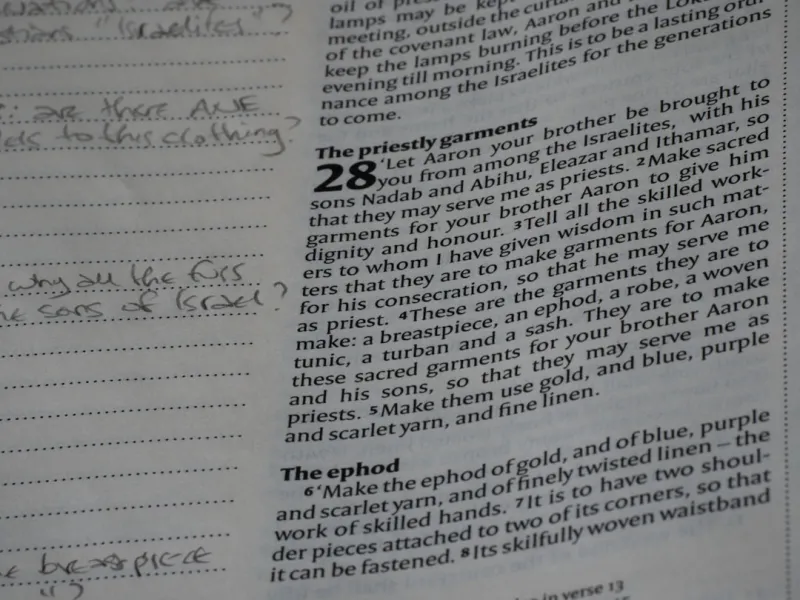 "Israelites"
are there ANE
to this clothing?
why all the fuss
sons of Israel?
breastpiece
oil of
lamps may be kep
meeting, outside the
of the covenant law, Aaron and
keep the lamps burning before the
evening till morning. This is to be a lasting
nance among the Israelites for the generations
to come.
The priestly garments
28 'Let Aaron your brother be brought to
you from among the Israelites, with his
sons Nadab and Abihu, Eleazar and Ithamar, so
that they may serve me as priests. 2Make sacred
garments for your brother Aaron to give him
dignity and honour. 3Tell all the skilled work-
ers to whom I have given wisdom in such mat-
ters that they are to make garments for Aaron,
for his consecration, so that he may serve me
as priest. 4These are the garments they are to
make: a breastpiece, an ephod, a robe, a woven
tunic, a turban and a sash. They are to make
these sacred garments for your brother Aaron
and his sons, so that they may serve me as
priests. 5Make them use gold, and blue, purple
and scarlet yarn, and fine linen.
The ephod
6'Make the ephod of gold, and of blue, purple
and scarlet yarn, and of finely twisted linen – the
work of skilled hands. 7It is to have two shoul-
der pieces attached to two of its corners, so that
it can be fastened. 8Its skilfully woven waistband
in verse 13